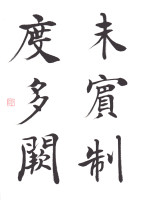 未賓制
度多闕